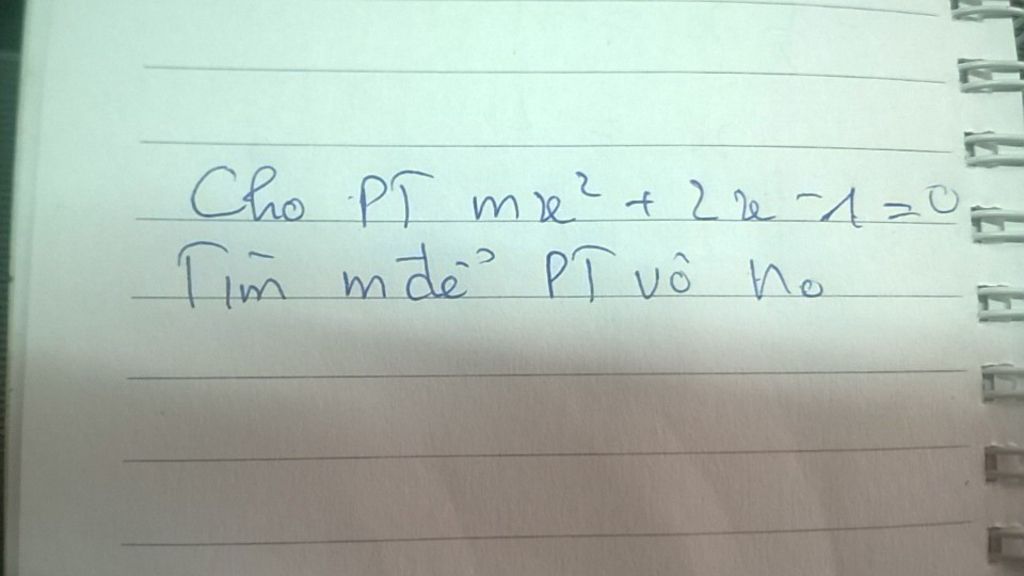 Cho PT mx² + 2x - 1 = 0
Tìm m để PT vô no